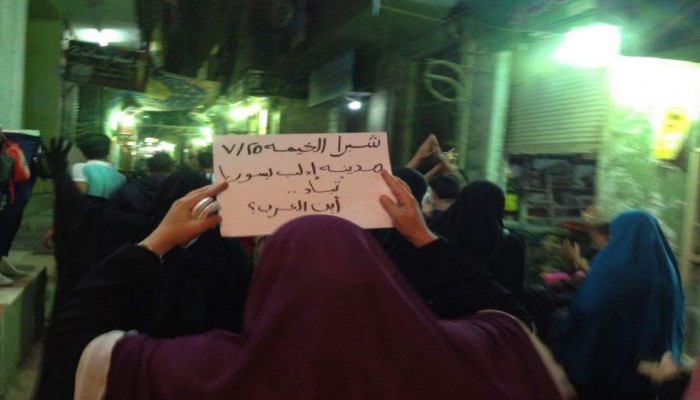 شبرا الخيمه ٧/٢٥
مدينة إدلب بسوريا
تباد..
أين العرب؟